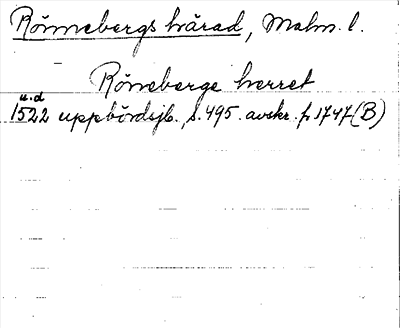 Rönnebergs härad, Malm. l.
Röneberge herret
u.d
1522 uppbördsjb. s. 495. avskr. fr 1747 (B)